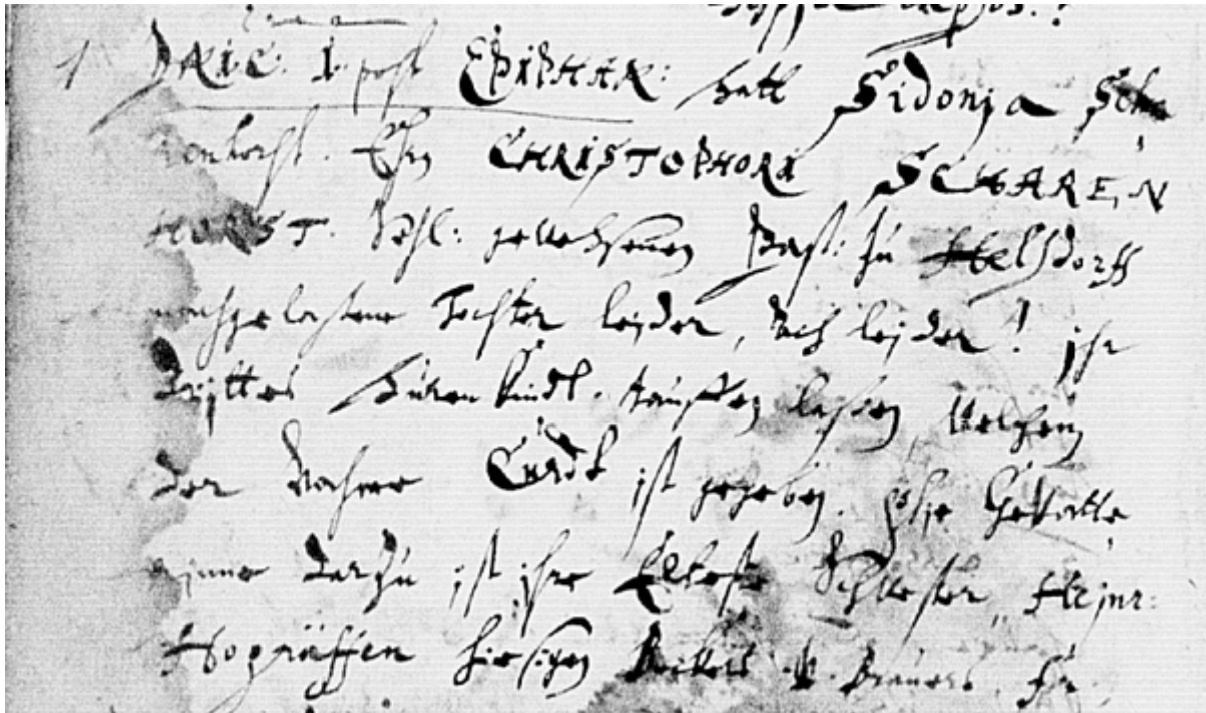 1 DNIC: I. post EPIPHAN: hatt Sidonia Scha
renhorst. Ehrn CHRISTOPHORI SCHAREN
HORST. Sehl: gewesenen Past: zu Helsdorff
nachgelassene Tochter leyder, Ach leyder! ihr
drittes Huren Kindl. tauffen lassen, welchem
der Nahme Curdt ist gegeben. Gevatte
rinne darzu ist ihre Elteste Schwester, Heinr:
Hogräffen hiesigen Beckers u. Brauers